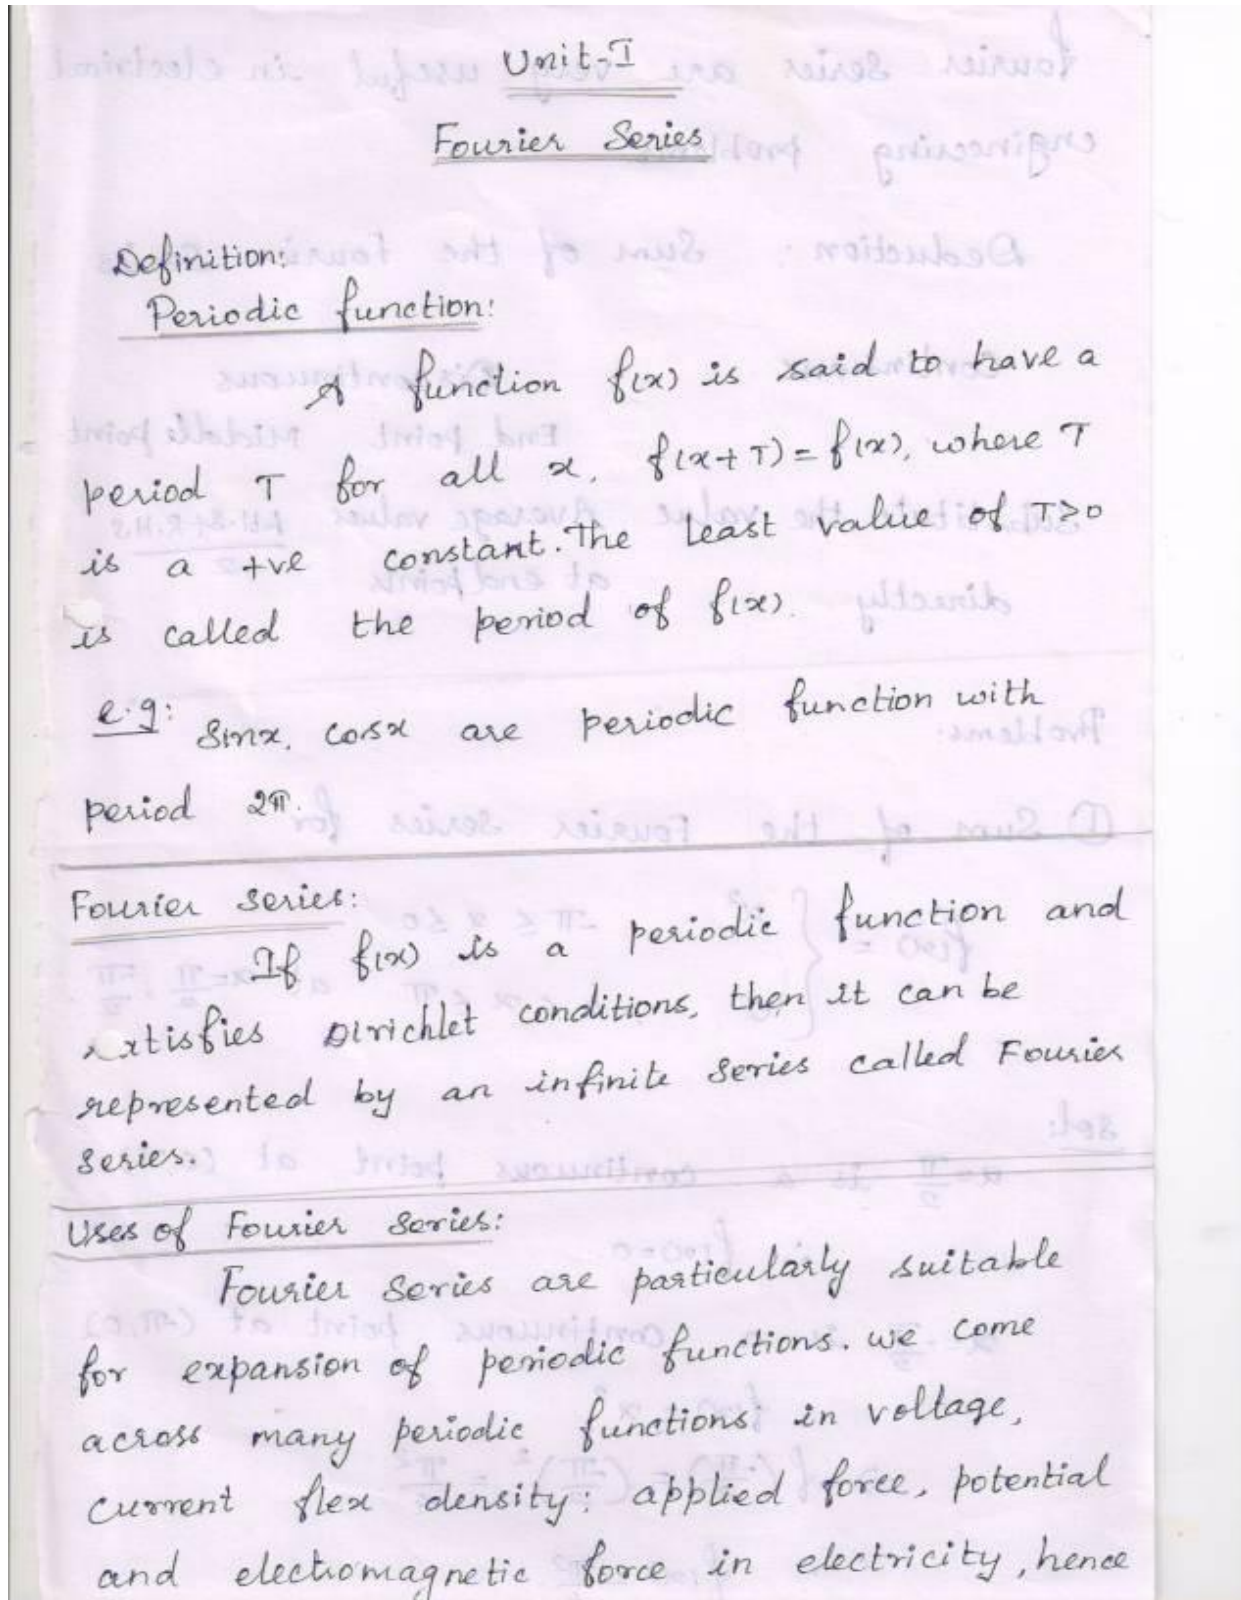 Unit-I
Fourier Series
Definition:
Periodic function:
A function f(x) is said to have a
period T for all x, f(x+T)=f(x), where T
is a +ve constant. The least value of T>0
is called the period of f(x).
e.g: Sinx, cosx are periodic function with
period 2π.
Fourier series:
If f(x) is a periodic function and
satisfies Dirichlet conditions, then it can be
represented by an infinite series called Fourier
series.
Uses of Fourier series:
Fourier series are particularly suitable
for expansion of periodic functions. we come
across many periodic functions in voltage,
current flex density; applied force, potential
and electromagnetic force in electricity, hence